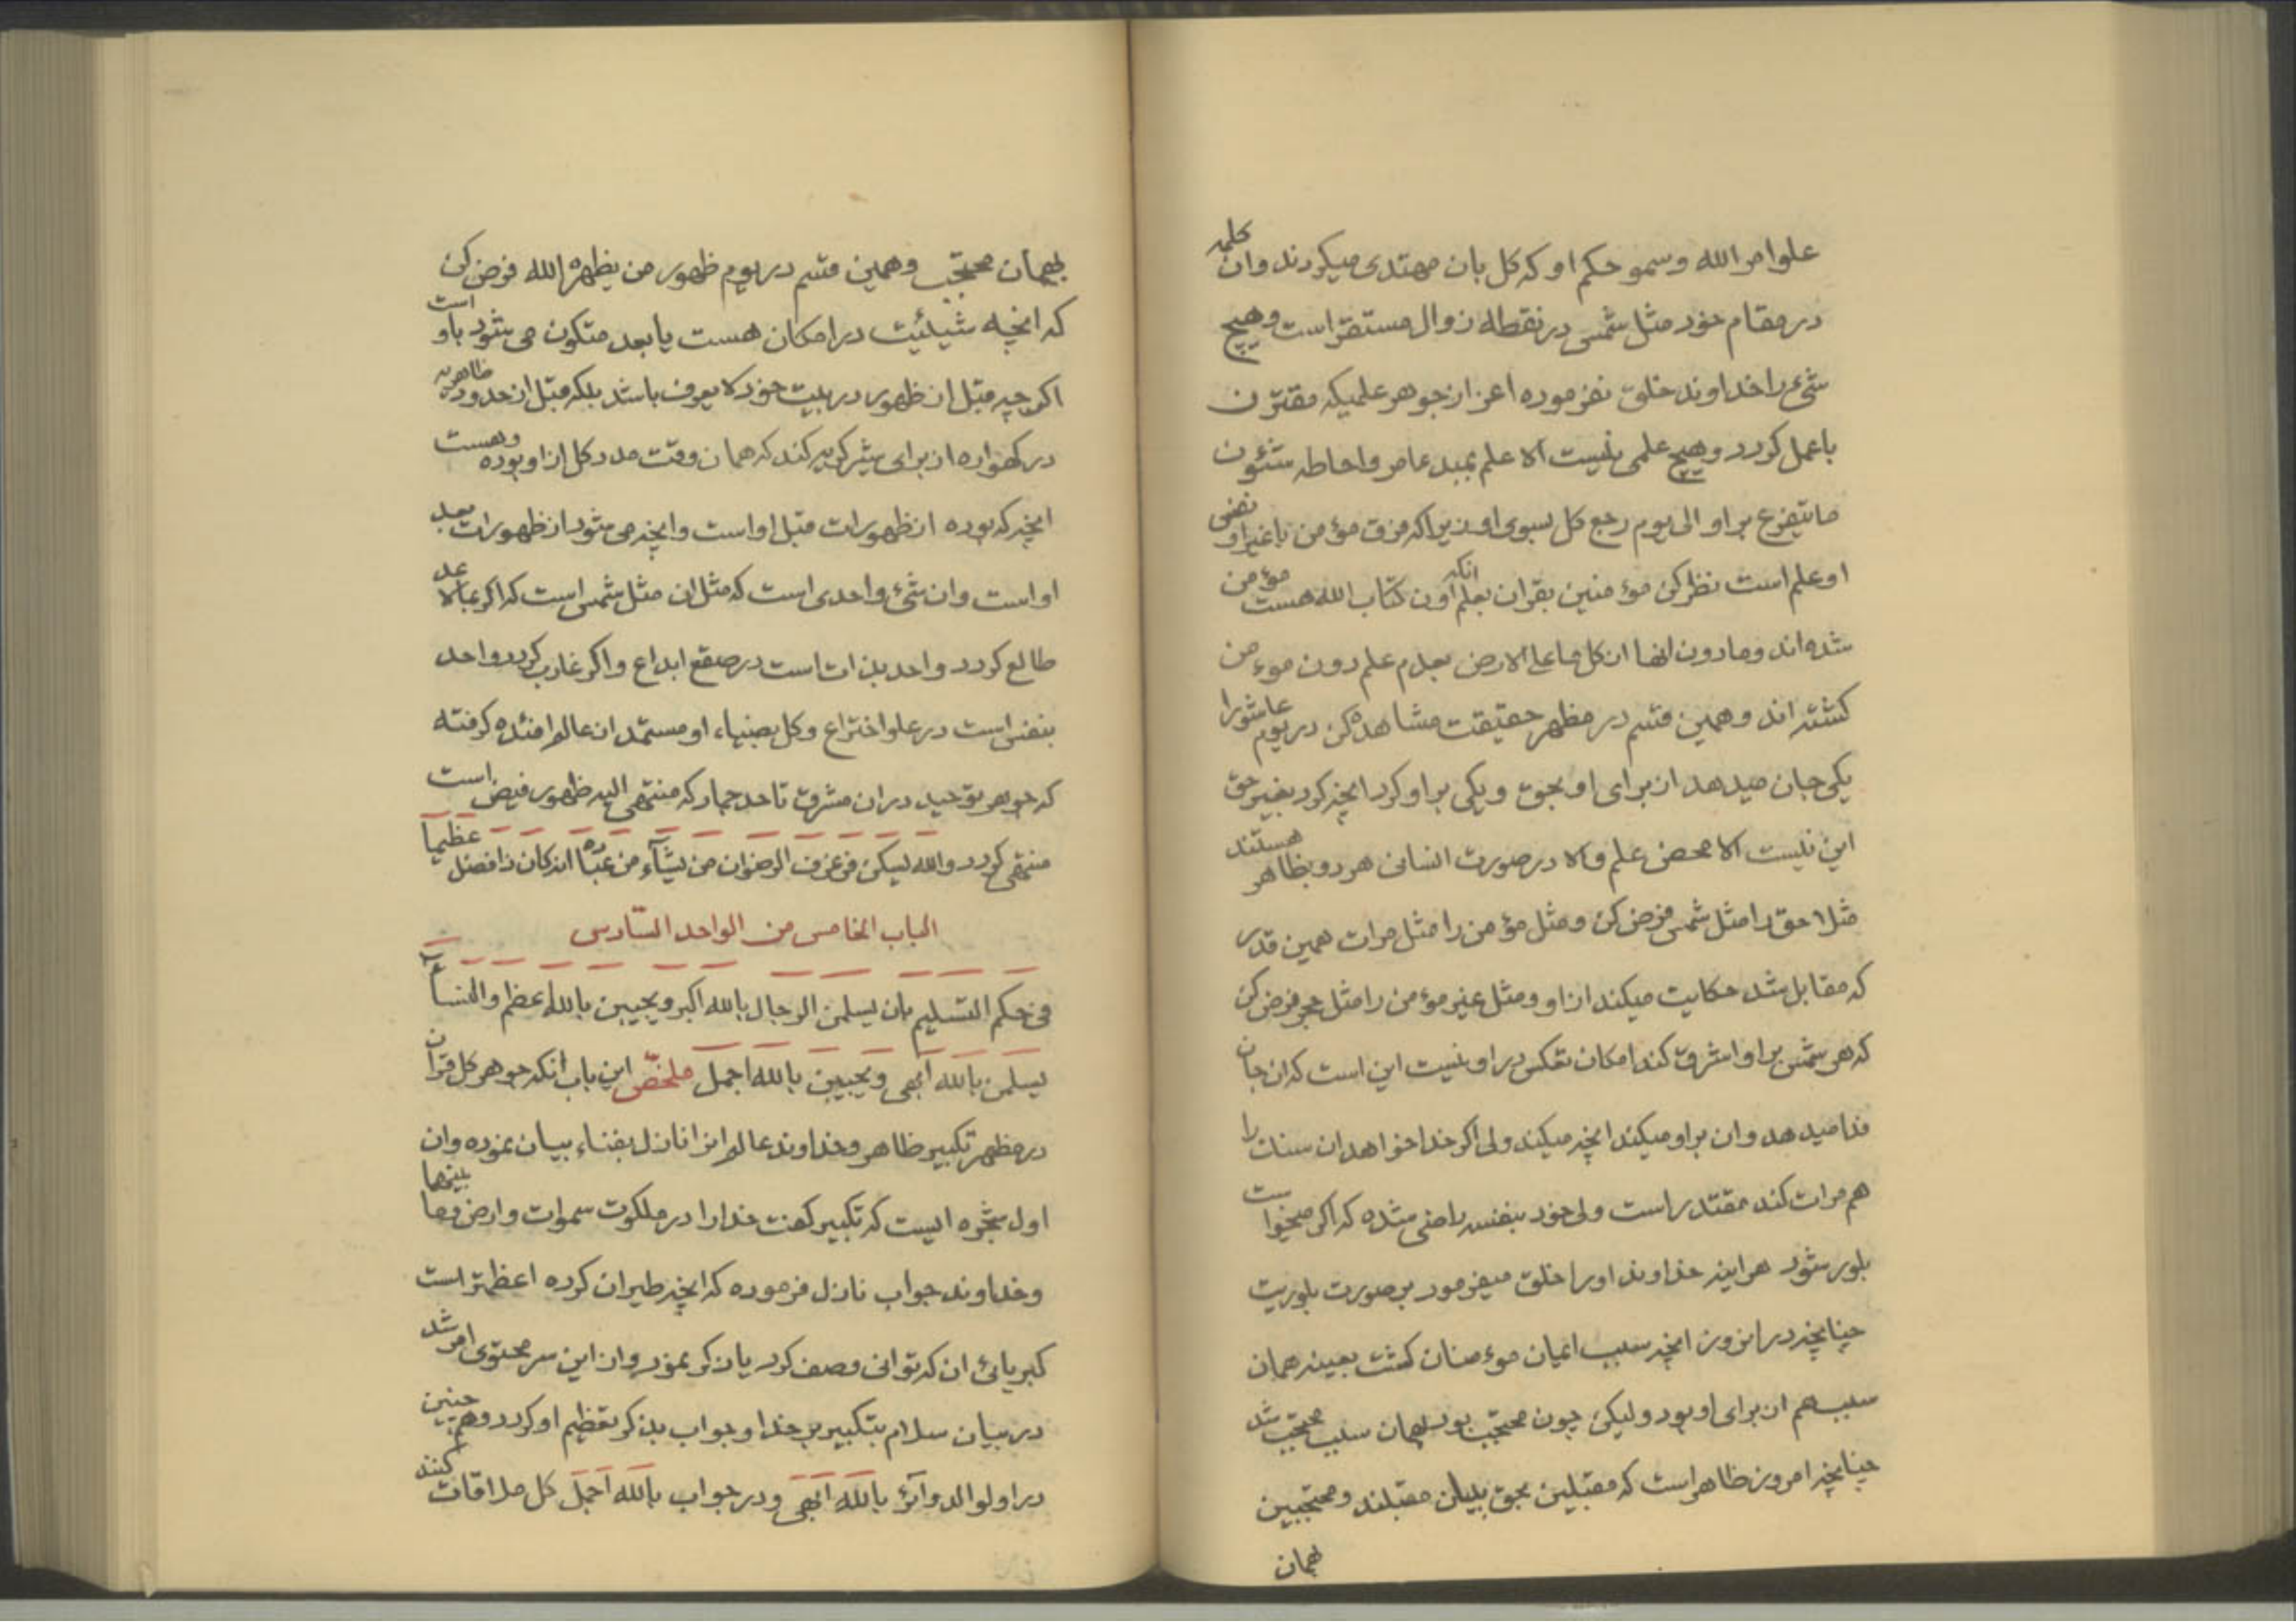 علو امر الله وسمو حکم او که کل بان مهتدی میکردند وان کلمه
در مقام خود مثل شمس در نقطه زوال مستقر است وهیچ
شیء را خداوند خلق نفرموده اعز از جوهر علمیکه مقترن
باعمل کردد وهیچ علمی نیست الا علم بمبدء امر واحاطه شئون
ما یتفرع بر او الی یوم رجع کل بسوی او زیرا که فرق مؤمن با غیر او نفس
او علم است نظر کن مؤمنین بقران بعلم انکه اون کتاب الله هست مؤمن
شده اند ومادون انها از کل ما علی الارض بعدم علم دون مؤمن
کشته اند وهمین قسم در مظهر حقیقت مشاهده کن در یوم عاشورا
یکی جان میدهد از برای او بحق ویکی بر او کرد انچه کرد بغیر حق
این نیست الا محض علم والا در صورت انسانی هر دو بظاهر هستند
مثلا حق را مثل شمس فرض کن ومثل مؤمن را مثل مرات همین قدر
که مقابل شد حکایت میکند از او ومثل غیر مؤمن را مثل حجر فرض کن
که هر شمس بر او اشرق کند امکان تعکس در او نیست این است که ان جان
فدا میدهد وان بر او میکند انچه میکند ولی اکر خدا خواهد ان سنک را
هم مرات کند مقتدر است ولی خود بنفسه راضی شده که اکر میخواست
بلور شود هراینه خداوند او را خلق میفرمود بر صورت بلوریت
چنانچه در انروز انچه سبب ایمان مؤمنان کشت بعینه همان
سبب هم از برای او بود ولیکن چون محتجب بود بهمان سبب محتجب شد
چنانچه امروز ظاهر است که مقبلین بحق ببیان مقبلند ومحتجبین
بهمان
بهمان محتجب وهمین قسم در یوم ظهور من یظهره الله فرض کن
که انچه شیئیت در امکان هست یا بعد متکون می شود باو است
اکرچه قبل از ظهور در بیت خود لا یعرف باشد بلکه قبل از حدود ظاهریه
در کهواره از برای شیر کریه کند که همان وقت مدد کل از او بوده وهست
انچه که بوده از ظهورات قبل او است وانچه می شود از ظهورات بعد
او است وان شیء واحدی است که مثل ان مثل شمس است که اکر عبالا عد
طالع کردد واحد بذات است در صقع ابداع واکر غارب کردد واحد
بنفس است در علو اختراع وکل بضیاء او مستمد از عالم افئده کرفته
که جواهر توحید در ان مشرق تا حد جماد که منتهی الیه ظهور فیض است
منتهی کردد والله لیسکن فی غرف الرضوان من یشآء من عباده انه کان ذا فضل عظیما
الباب الخامس من الواحد السّادس
فی حکم التسلیم بان یسلمن الرجال بالله اکبر ویجیبن بالله اعظم والنسآء
یسلمن بالله ابهی ویجیبن بالله اجمل ملخّص این باب انکه جوهر کل قران
در مظهر تکبیر ظاهر وخداوند عالم انرا نازل بفناء بیان نموده وان
اول شجره ایست که تکبیر کفت خدا را در ملکوت سموات وارض وما بینهما
وخداوند جواب نازل فرموده که انچه طیران کرده اعظمتر است
کبریائی ان که توانی وصف کرد یا ذکر نمود وان این سر محتوی امر شد
در بیان سلام بتکبیر بر خدا وجواب بذکر تعظیم او کردد وهمچنین
در اولو الدوائر بالله ابهی ودر جواب بالله اجمل کل ملاقات کنند